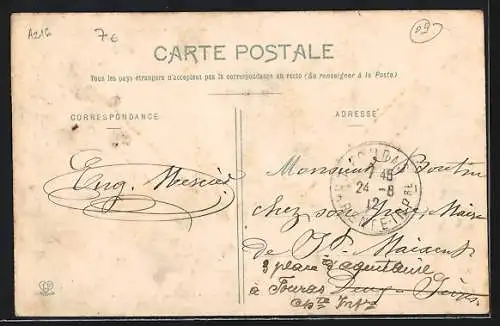 A216
7€
09
CARTE POSTALE
Tous les pays étrangers n'acceptent pas la correspondance au recto (Se renseigner à la Poste)
CORRESPONDANCE
ADRESSE
Eug. Mercier
Monsieur Boutin
chez son père, Maixe
de St. Maixent
3 place d'aquitaine
à Fouras Deux-Sèvres
Chte Infre
7 45
24 - 8
12